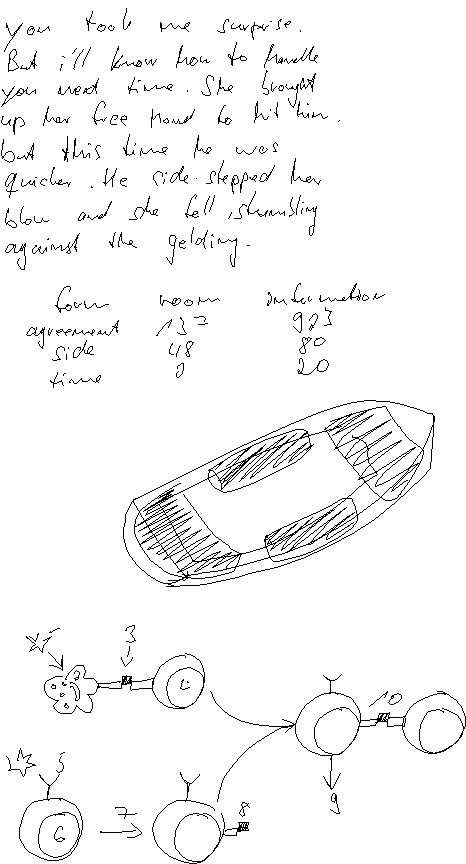 you took me surprise.
But i'll know how to handle
you next time. She brought
up her free hand to hit him.
but this time he was
quicker. He side-stepped her
blow and she fell, stumbling
against the gelding.
form room information
agreement 137 923
side 48 80
time 2 20
3
5
6
7
8
9
10